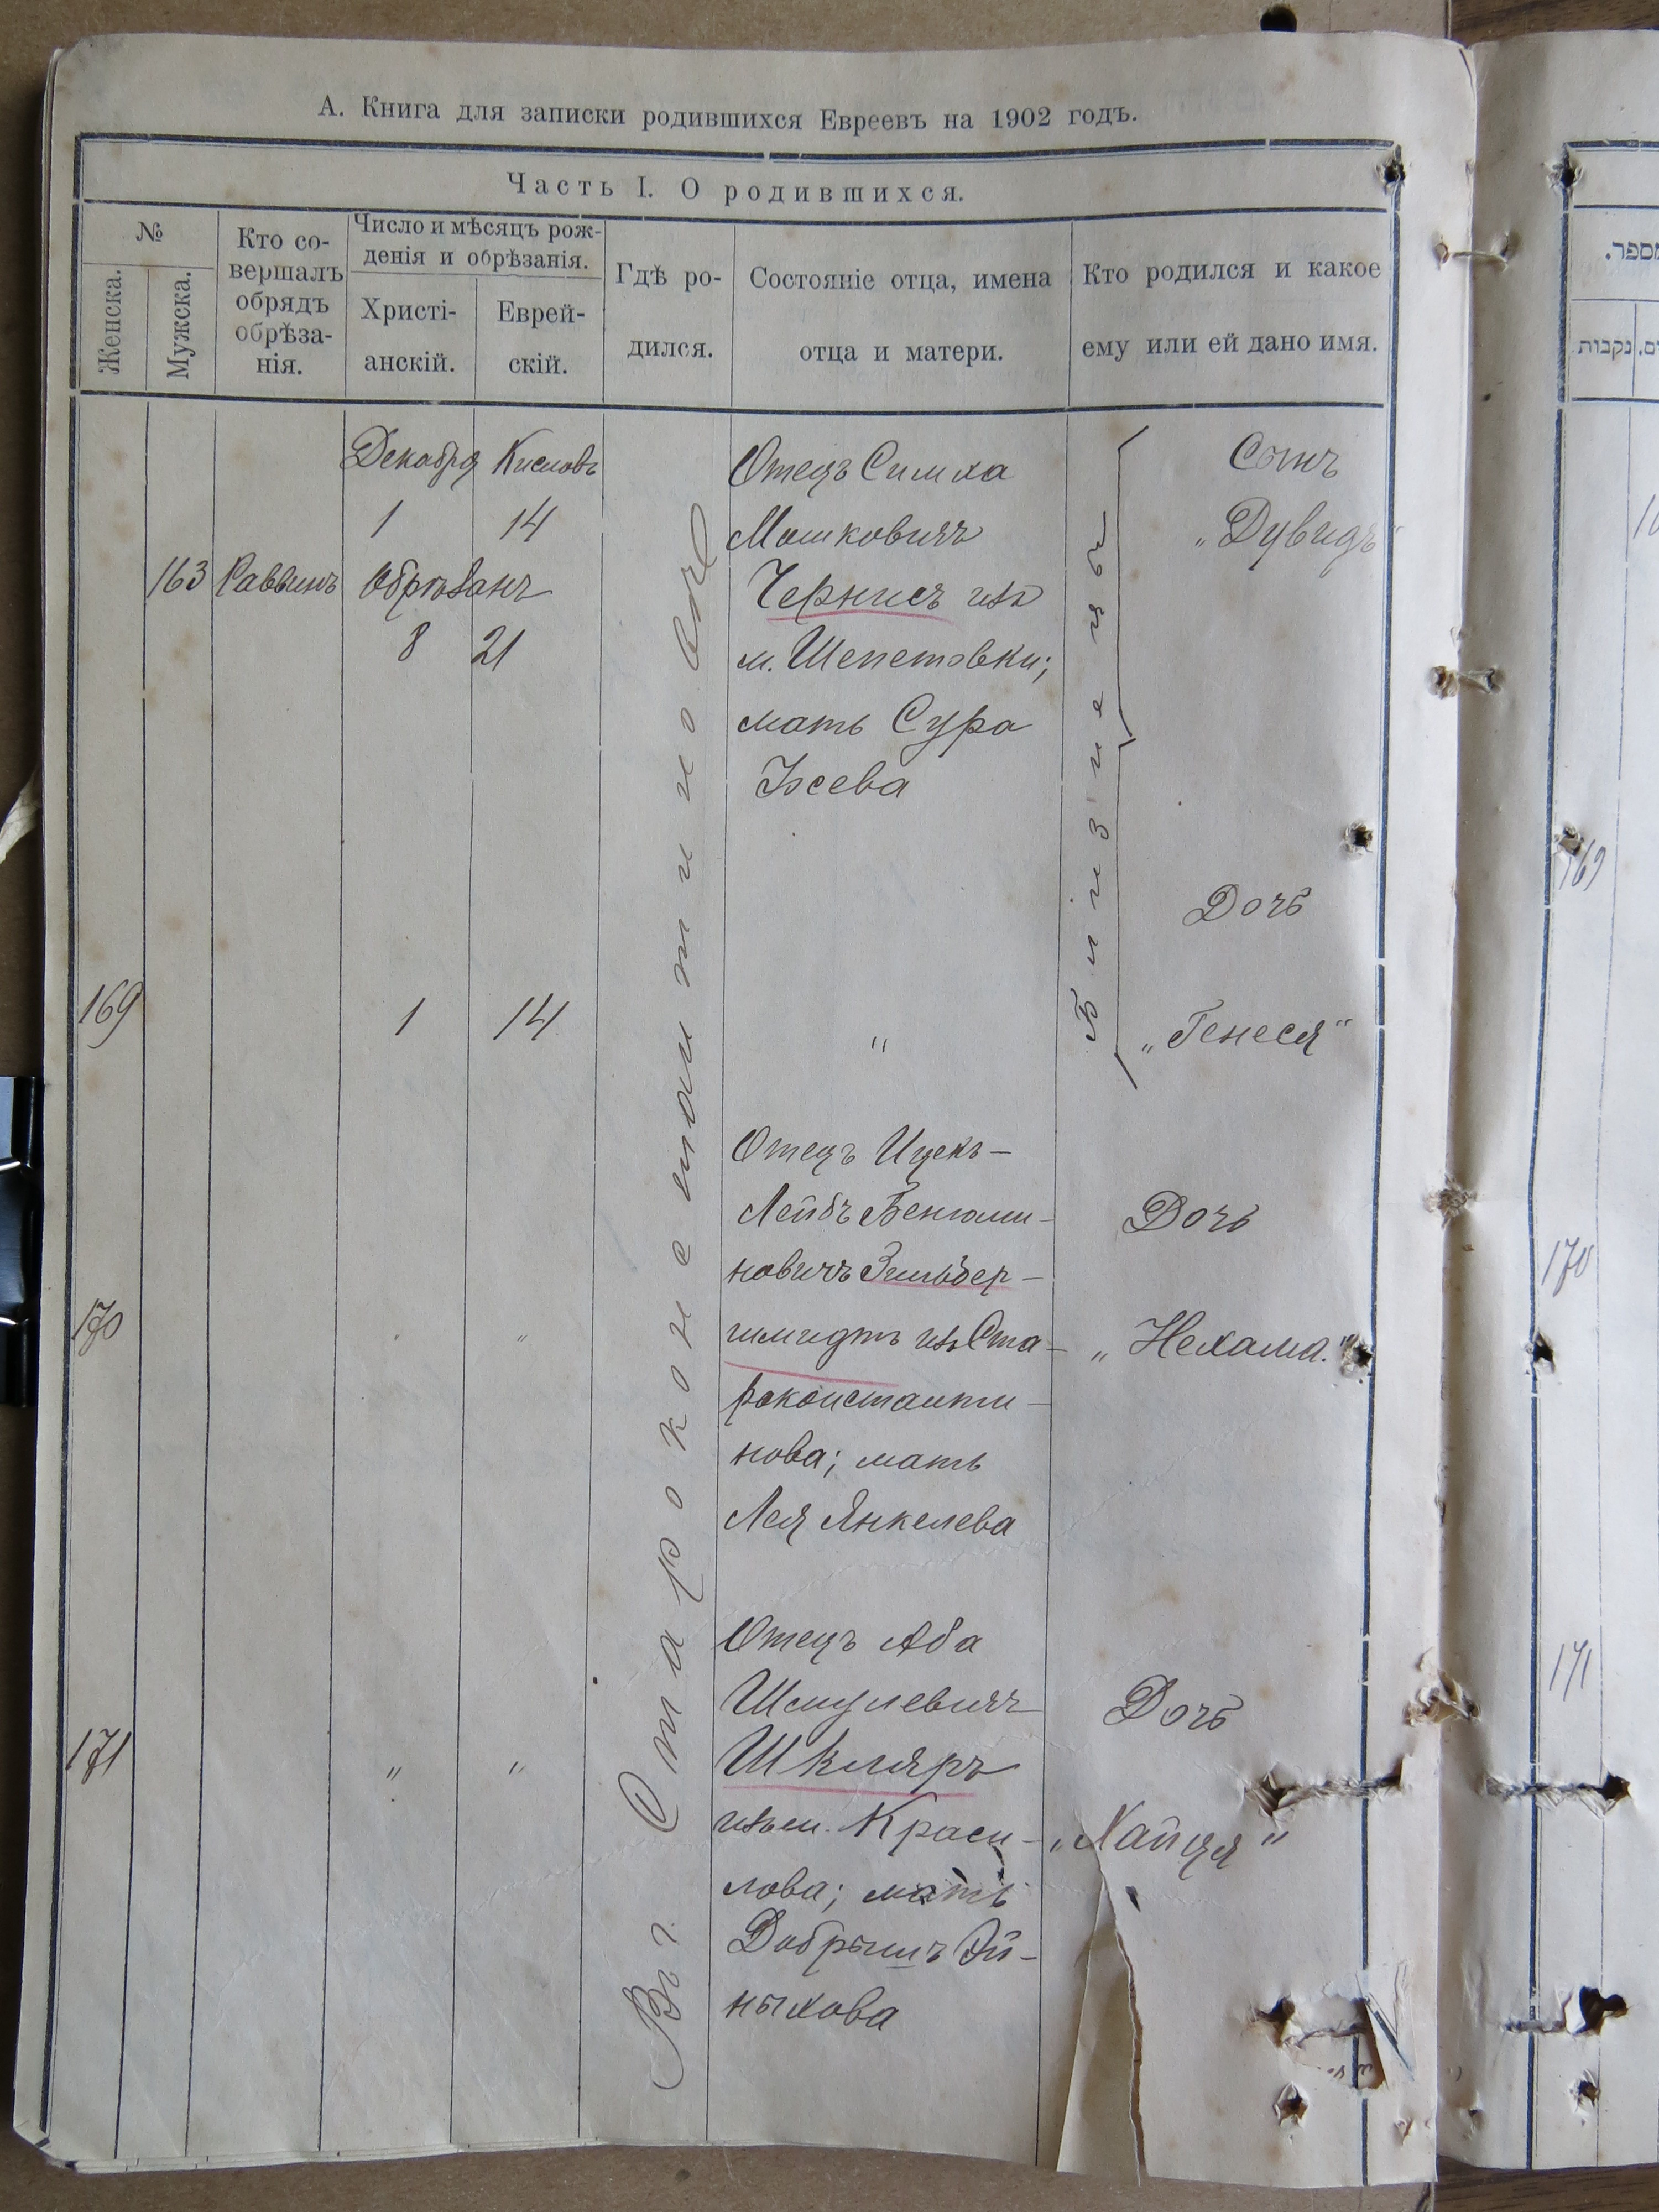 А. Книга для записки родившихся Евреевъ на 1902 годъ.
Часть I. О родившихся.
№
Женска.
Мужска.
Кто со-
вершалъ
обрядъ
обрѣза-
нія.
Число и мѣсяцъ рож-
денія и обрѣзанія.
Христі-
анскій.
Еврей-
скій.
Гдѣ ро-
дился.
Состояніе отца, имена
отца и матери.
Кто родился и какое
ему или ей дано имя.
מספר.
נקבות
Въ г. Староконстантиновѣ
Близнецы
Декабря Кислевъ
1 14
163 Раввинъ Обрѣзанъ
8 21
Отецъ Симха
Мошковичъ
Чернисъ изъ
м. Шепетовки;
мать Сура
Іосева
Сынъ
„Дувидъ“
169 1 14 „
Дочь
„Генеся“
170 „ „
Отецъ Ицекъ-
Лейбъ Беніоми-
новичъ Зильбер-
шмидтъ изъ Ста-
роконстанти-
нова; мать
Лея Янкелева
Дочь
„Нехама.“
171 „ „
Отецъ Аба
Шмулевичъ
Шкляръ
изъ м. Краси-
лова; мать
Добрышъ Эй-
ныхова
Дочь
„Хайця“
169
170
171